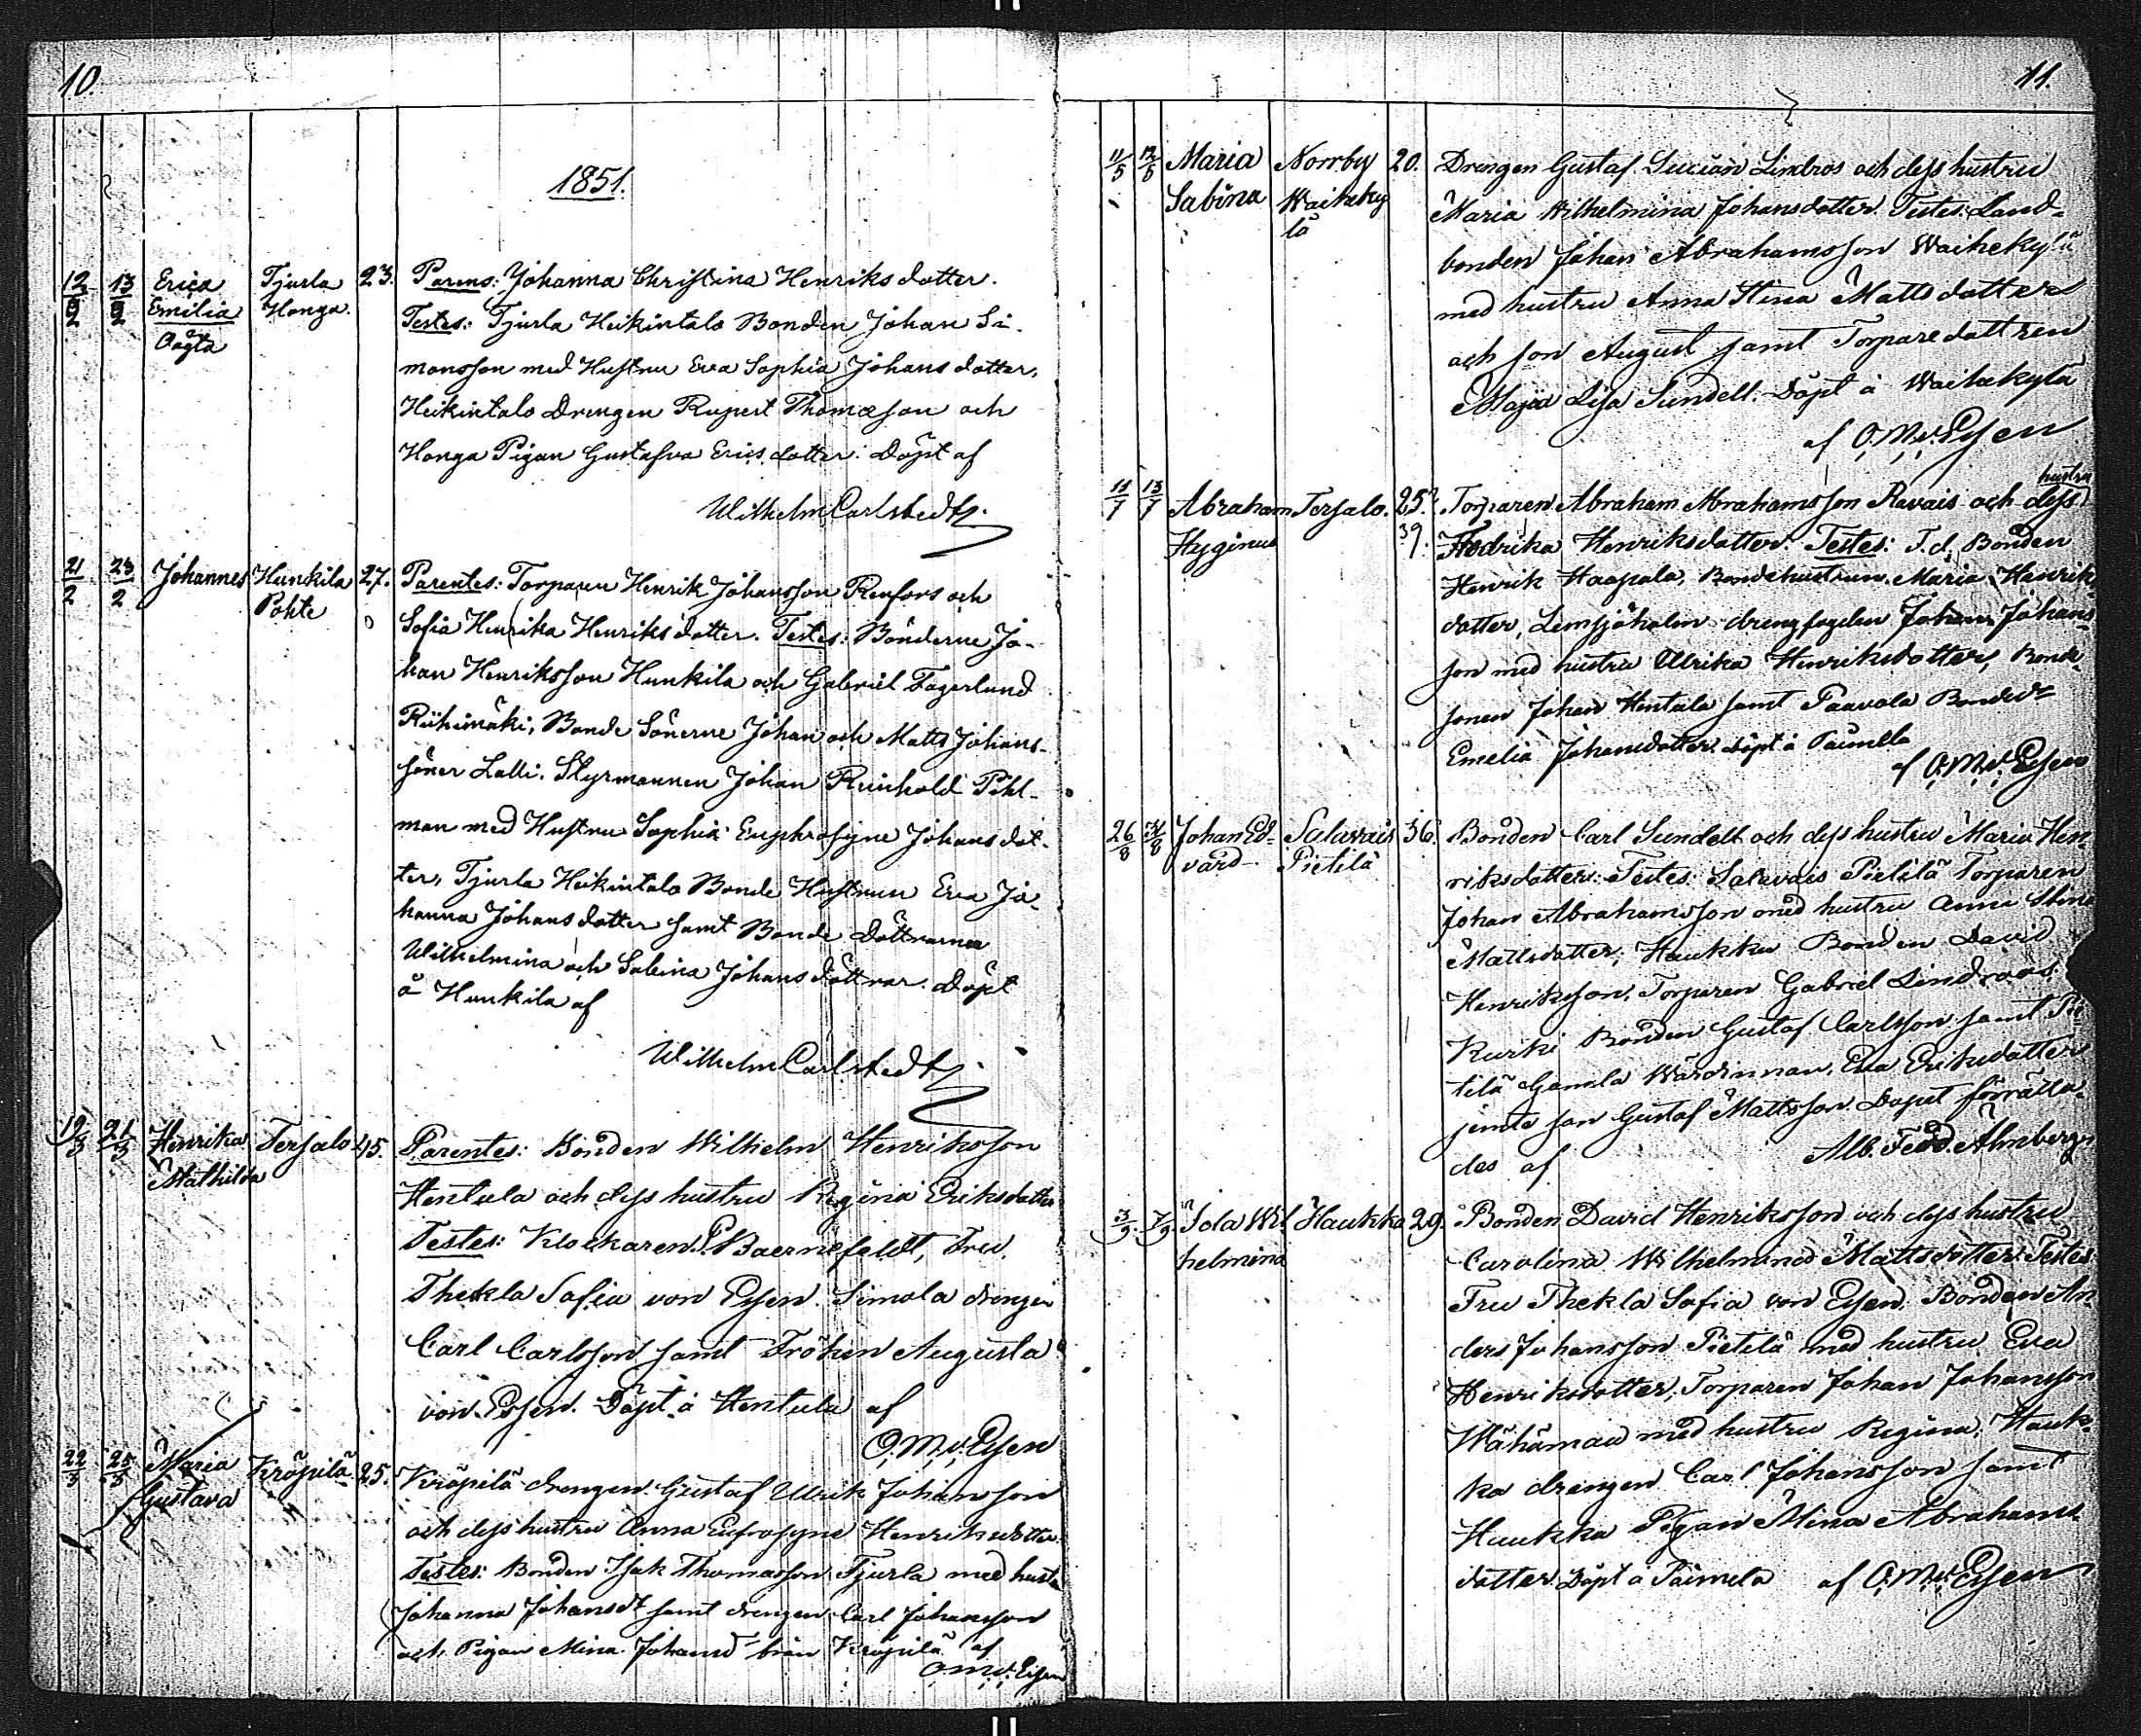 10.
1851.
12/2 13/2 Erica Tjurla 23. Parens: Johanna Christina Henriksdotter.
Emilia Honga. Testes: Tjurla Heikintalo Bonden Johan Si-
Oägta monsson med Hustru Eva Sophia Johansdotter,
Heikintalo Drengen Rupert Thomasson och
Honga Pigan Gustafva Ericsdotter. Döpt af
Wilhelm Carlstedt.
21/2 23/2 Johannes Hunkila 27. Parentes: Torparen Henrik Johansson Renfors och
Pohte Sofia Henrika Henriksdotter. Testes: Bönderne Jo-
han Henriksson Hunkila och Gabriel Fagerlund
Riihimäki, Bonde Sönerne Johan och Matts Johans-
söner Lalli. Styrmannen Johan Reinhold Pihl-
man med Hustru Sophia Euphrosyne Johansdot-
ter, Tjurla Heikintalo Bonde Hustrun Eva Jo-
hanna Johansdotter samt Bonde Döttrarna
Wilhelmina och Sabina Johansdöttrar. Döpt
å Hunkila af
Wilhelm Carlstedt.
19/3 21/3 Henrika Tersalo 45. Parentes: Bonden Wilhelm Henriksson
Mathilda Hentula och dess hustru Regina Eriksdotter
Testes: Klockaren P. Baernefeldt, Fru
Thekla Sofia von Essen. Simola drengen
Carl Carlsson samt Fröken Augusta
von Essen. Döpt å Hentula af
O.M.v.Essen
22/3 25/3 Maria Kröpilä 25. Kröpilä drengen Gustaf Ulrik Johansson
Gustava och dess hustru Anna Eufrosyne Henriksdotter
Testes: Bonden Isak Thomasson Tjurla med hustru
Johanna Johansdt samt drengen Carl Johansson
och Pigan Mina Johansd från Kröpilä af
O.M.v.Essen
11.
11/5 12/5 Maria Norrby 20. Drengen Gustaf Lucian Lindros och dess hustru
Sabina Waiheky Maria Wilhelmina Johansdotter. Testes: Land-
lä bonden Johan Abrahamsson Waihekylä
med hustru Anna Stina Mattsdotter
och son August samt Torparedottren
Maja Lisa Sundell. Döpt å Waihekylä
af O.M.v.Essen
11/7 13/7 Abraham Tersalo. 25. Torparen Abraham Abrahamsson Ravais och dess hustru
Hyginus 39. Fredrika Henriksdotter. Testes: F.d. Bonden
Henrik Haapala, Bondehustrun Maria Henriks-
dotter, Lemsjöholm drengfogden Johan Johans-
son med hustru Ulrika Henriksdotter, Bonde-
sonen Johan Hentula samt Paavola Bonded
Emelia Johansdotter. Döpt å Taimela
af O.M.v.Essen
26/8 31/8 Johan Ed- Salavais 36. Bonden Carl Sundell och dess hustru Maria Hen-
vard Pietilä riksdotter: Testes: Salavais Pietilä Torparen
Johan Abrahamsson med hustru Anna Stina
Mattsdotter; Haukka Bonden David
Henriksson, Torparen Gabriel Lindroos.
Kurki Bonden Gustaf Carlsson samt Pie-
tilä Gamla Wärdinnan, Eva Eriksdotter
jemte son Gustaf Mattsson. Dopet förrätta-
des af Alb. Ferd. Ahnberg
3/9 7/9 Ida Wil Haukka 29. Bonden David Henriksson och dess hustru
helmina Carolina Wilhelmina Mattsdotter. Testes
Fru Thekla Sofia von Essen. Bonden An-
ders Johansson Pietilä med hustru Eva
Henriksdotter; Torparen Johan Johansson
Wähämaa med hustru Regina, Hauk-
ka drengen Carl Johansson samt
Haukka Pigan Mina Abrahams-
dotter. Döpt å Taimela af O.M.v.Essen